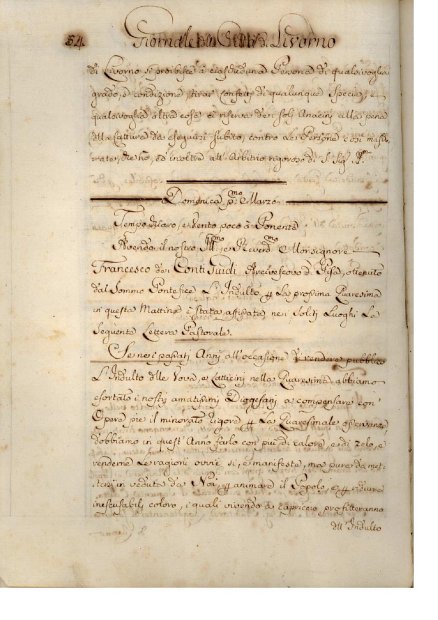 54. Giornale della Città di Livorno
di Livorno si proibisce à ciascheduna Persona di qualsivoglia
grado, e condizione tirar confetti di qualunque Specie, e
qualsivoglia altra cosa à riserva dei soli Anacini alla pena
della cattura da eseguirsi subito contro le Persone così masche
rate, che nò, ed inoltre all'Arbitrio rigoroso di S. Sig.
Domenica p.mo Marzo
Tempo chiaro, e Vento poco à Ponente
Avendo il nostro Ill.mo, e Reverd.mo Monsignore
Francesco dei Conti Guidi Arcivescovo di Pisa, ottenuto
dal Sommo Pontefice L'Indulto p La prossima Quaresima
in questa Mattina è Stata affissata nei Soliti Luoghi La
Seguente Lettera Pastorale.
Se nei passati Anni all'occasione di rendere pubblico
L'Indulto delle Uova, e Latticini nella Quaresima abbiamo
esortato i nostri amatissimi Diogesani a compensare con
Opere pie il minorato Rigore p La Quaresimale osservanza
dobbiamo in quest'Anno farlo con più di calore, e di Zelo, e
renderne Le ragioni ovvie sì, e manifeste, ma pure da met
tersi in veduta da Noi, p animare il Popolo, e p ridurre
inescusabili coloro, i quali vivendo à capriccio profitteranno
dell'Indulto